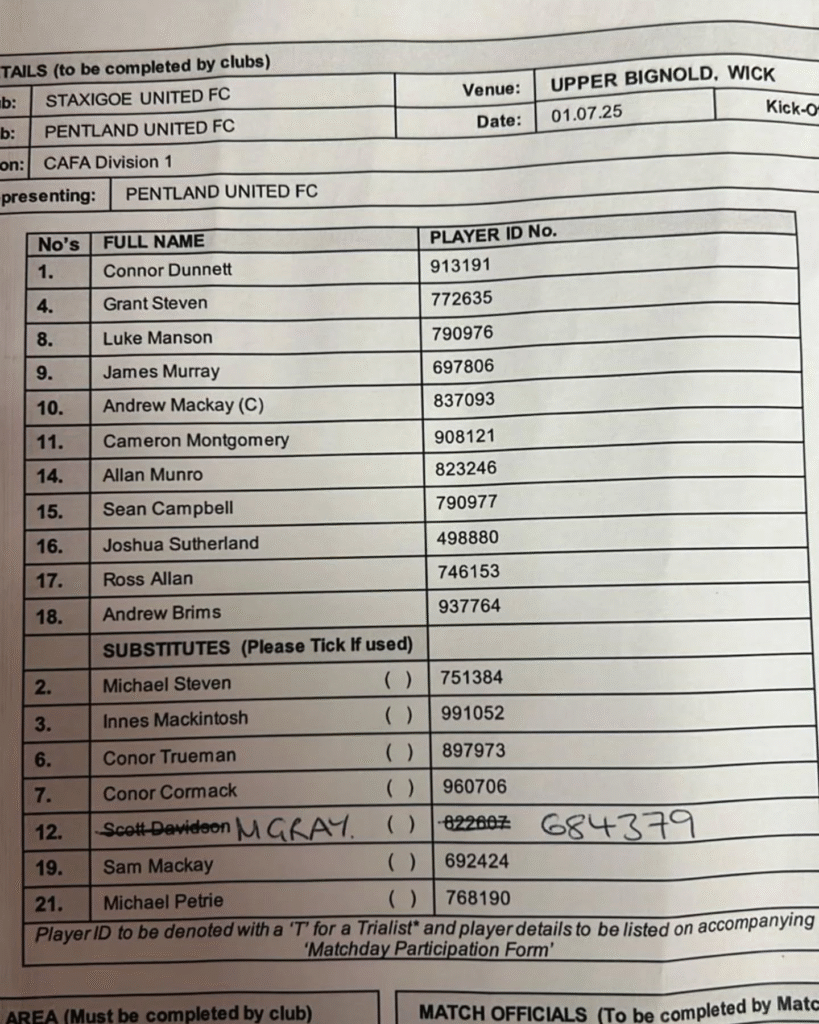 TAILS (to be completed by clubs)
b: STAXIGOE UNITED FC Venue: UPPER BIGNOLD. WICK
b: PENTLAND UNITED FC Date: 01.07.25 Kick-O
on: CAFA Division 1
presenting: PENTLAND UNITED FC
No's FULL NAME PLAYER ID No.
1. Connor Dunnett 913191
4. Grant Steven 772635
8. Luke Manson 790976
9. James Murray 697806
10. Andrew Mackay (C) 837093
11. Cameron Montgomery 908121
14. Allan Munro 823246
15. Sean Campbell 790977
16. Joshua Sutherland 498880
17. Ross Allan 746153
18. Andrew Brims 937764
SUBSTITUTES (Please Tick If used)
2. Michael Steven ( ) 751384
3. Innes Mackintosh ( ) 991052
6. Conor Trueman ( ) 897973
7. Conor Cormack ( ) 960706
12. Scott Davidson M GRAY. ( ) 822607 684379
19. Sam Mackay ( ) 692424
21. Michael Petrie ( ) 768190
Player ID to be denoted with a 'T' for a Trialist* and player details to be listed on accompanying
'Matchday Participation Form'
AREA (Must be completed by club) MATCH OFFICIALS (To be completed by Matc